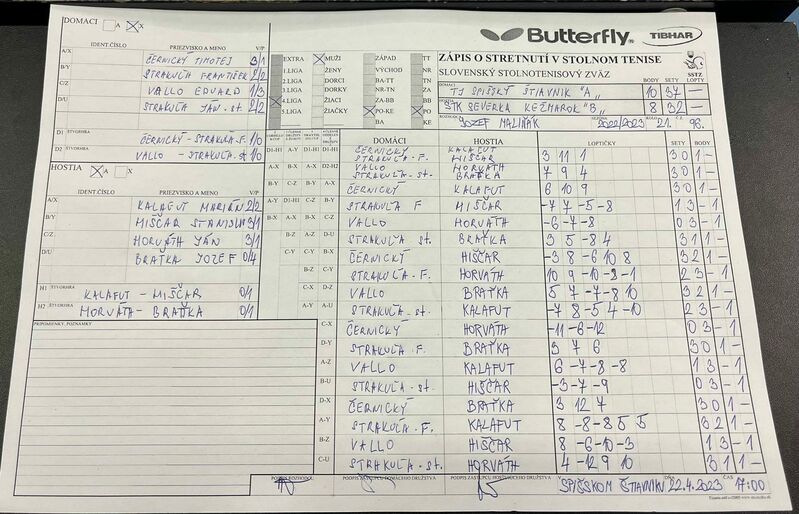 DOMÁCI A X
Butterfly TIBHAR
IDENT.ČÍSLO PRIEZVISKO A MENO V/P
A/X ČERNICKÝ TIMOTEJ 3/1
B/Y STRAKUĽA FRANTIŠEK 2/2
C/Z VALLO EDUARD 1/3
D/U STRAKUĽA JÁN. st. 2/2
D1 ŠTVORHRA ČERNICKÝ - STRAKUĽA.F. 1/0
D2 ŠTVORHRA VALLO - STRAKUĽA.st. 1/0
EXTRA MUŽI ZÁPAD TT
1.LIGA ŽENY VÝCHOD NR
2.LIGA DORCI BA-TT TN
3.LIGA DORKY NR-TN ZA
4.LIGA ŽIACI ZA-BB BB
5.LIGA ŽIAČKY PO-KE PO
BA KE
ZÁPIS O STRETNUTÍ V STOLNOM TENISE
SLOVENSKÝ STOLNOTENISOVÝ ZVÄZ SSTZ
BODY SETY LOPTY
DOMÁCI TJ SPIŠSKÝ ŠTIAVNIK "A" 10 37 -
ŠTK SEVERKA KEŽMAROK "B" 8 32 -
ROZHODCA JOZEF MALIŇÁK SEZÓNA 2022/2023 KOLO 21. Č. 98.
HOSTIA A X
IDENT.ČÍSLO PRIEZVISKO A MENO V/P
A/X KALAFUT MARIÁN 2/2
B/Y MIŠČAR STANISLAV 3/1
C/Z HORVÁTH JÁN 3/1
D/U BRAŤKA JOZEF 0/4
H1 ŠTVORHRA KALAFUT - MIŠČAR 0/1
H2 ŠTVORHRA HORVÁTH - BRAŤKA 0/1
PRIPOMIENKY, POZNÁMKY
DOMÁCI HOSTIA LOPTIČKY SETY BODY
D1-H1 A-Y D1-H1 ČERNICKÝ STRAKUĽA.F. KALAFUT MIŠČAR 3 11 1 3 0 1 -
A-X B-X D2-H2 VALLO STRAKUĽA-st. HORVÁTH BRAŤKA 7 9 4 3 0 1 -
B-Y C-Z B-Y A-X ČERNICKÝ KALAFUT 6 10 9 3 0 1 -
A-Y D1-H1 C-Z B-Y STRAKUĽA F MIŠČAR -7 7 -5 -8 1 3 - 1
B-X A-X B-X C-Z VALLO HORVÁTH -6 -7 -8 0 3 - 1
A-Z A-Z D-U STRAKUĽA st. BRAŤKA 3 5 -8 4 3 1 1 -
C-Y C-Y B-X ČERNICKÝ MIŠČAR -3 8 -6 10 8 3 2 1 -
B-Z C-Y STRAKUĽA.F. HORVÁTH 10 9 -10 -8 -1 2 3 - 1
C-X D-Z VALLO BRAŤKA 5 7 -7 -8 10 3 2 1 -
A-Y A-U STRAKUĽA.st. KALAFUT -7 8 -5 4 -10 2 3 - 1
C-X ČERNICKÝ HORVÁTH -11 -6 -12 0 3 - 1
D-Y STRAKUĽA F. BRAŤKA 3 7 6 3 0 1 -
A-Z VALLO KALAFUT 6 -7 -8 -8 1 3 - 1
B-U STRAKUĽA.st. MIŠČAR -3 -7 -9 0 3 - 1
D-X ČERNICKÝ BRAŤKA 3 12 7 3 0 1 -
A-Y STRAKUĽA.F. KALAFUT 8 -8 -8 5 5 3 2 1 -
B-Z VALLO MIŠČAR 8 -6 -10 -3 1 3 - 1
C-U STRAKUĽA-st. HORVÁTH 4 -12 9 10 3 1 1 -
PODPIS ROZHODCU PODPIS ZÁSTUPCU DOMÁCEHO DRUŽSTVA PODPIS ZÁSTUPCU HOSŤUJÚCEHO DRUŽSTVA V SPIŠSKOM ŠTIAVNIKU DŇA 22.4.2023 ČAS 17:00